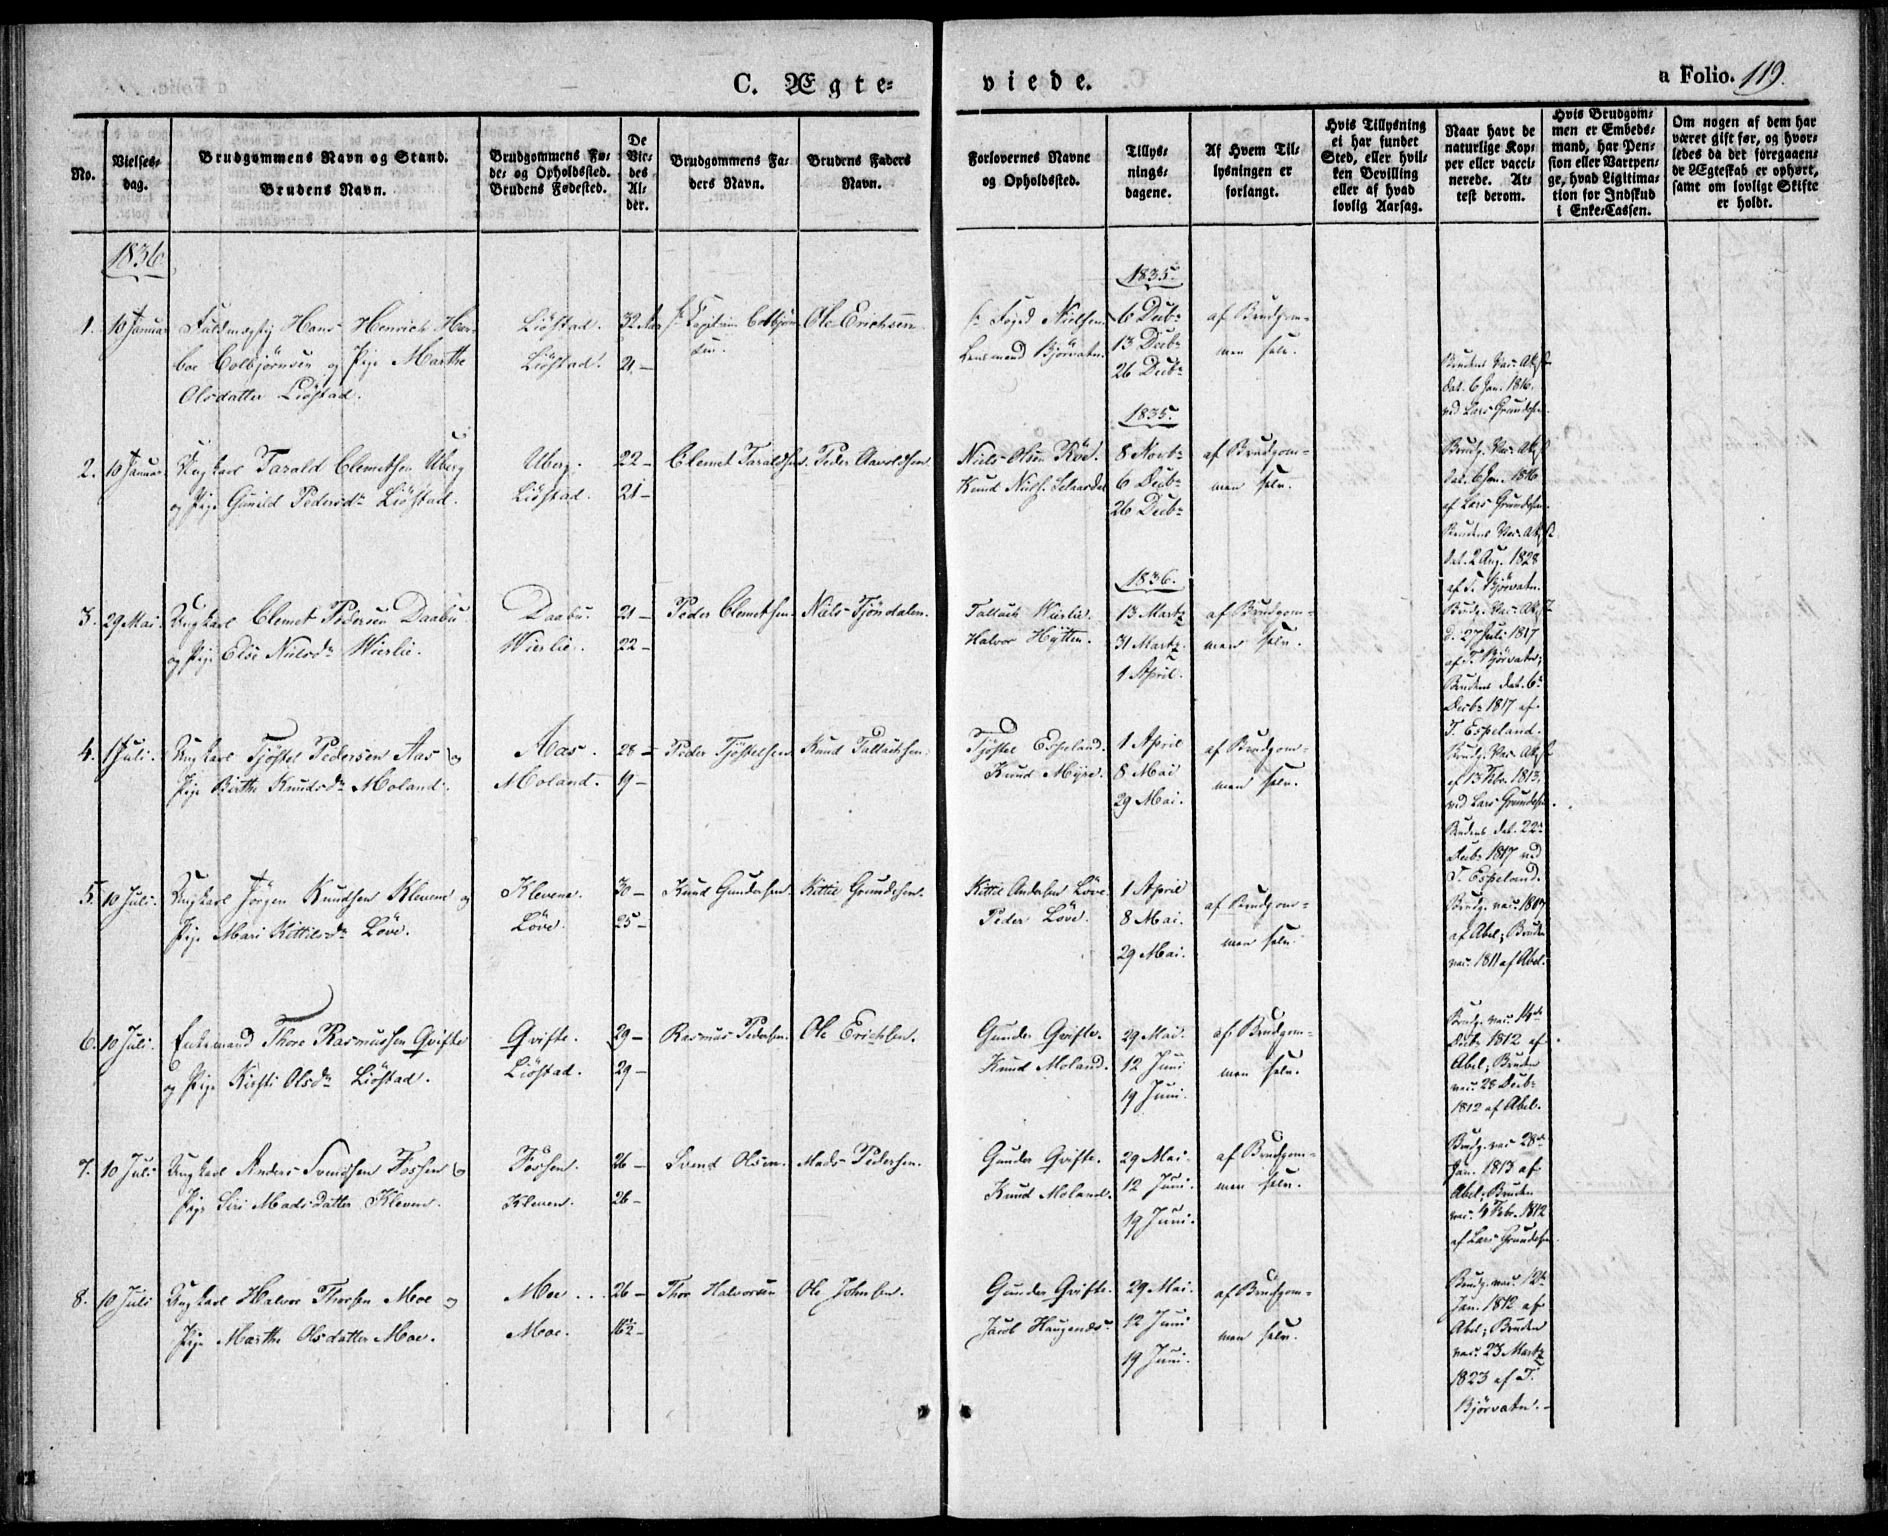 C. Ægte=
viede.
a Folio. 119.
No.
Vielses=
dag.
Brudgommens Navn og Stand.
Brudens Navn.
Brudgommens Fø=
de= og Opholdssted.
Brudens Fødested.
De
Vie=
des
Al=
der.
Brudgommens Fa=
ders Navn.
Brudens Faders
Navn.
Forlovernes Navne
og Opholdssted.
Tillys=
nings=
dagene.
Af Hvem Til=
lysningen er
forlangt.
Hvis Tillysning
ei har fundet
Sted, eller hvil=
ken Bevilling
eller af hvad
lovlig Aarsag.
Naar havt de
naturlige Kop=
per eller vacci=
nerede. At=
test derom.
Hvis Brudgom=
men er Embeds=
mand, har Pen=
sion eller Vartpen=
ge, hvad Ligitima=
tion for Indskud
i Enke=Cassen.
Om nogen af dem har
været gift før, og hvor=
ledes da det foregaaen=
de Ægteskab er ophørt,
samt om lovligt Skifte
er holdt.
1836
1835.
1. 10 Januar Fuldmægtig Hans Henrich Her=
boe Colbjørnsen og Pige Marthe
Olsdatter Liøstad.
Liøstad.
Liøstad.
32 Aar
21 –
Capitain Colbjørn
sen.
Ole Erichsen.
Foged Nielsen
Lensmand Bjørvatn.
6 Decbr
13 Decbr
26 Decbr
af Brudgom=
men selv.
Brudens Vac. Att.
dat. 6 Jan. 1816
ved Lars Grundesen.
1835.
2. 10 Januar Ungkarl Tarald Clemetsen Uberg
og Pige Gunild Pedersdr Liøstad.
Uberg.
Liøstad.
22 –
21 –
Clemet Taraldsen.
Peder Aavoldsen.
Niels Olsen Røe.
Knud Niels. Selaasdal
8 Novbr
6 Decbr
26 Decbr
af Brudgom=
men selv.
Brudg. Vac. Att.
dat. 6 Jan. 1816
af Lars Grundesen.
Brudens Vac. Att.
dat. 2 Aug. 1828
af T. Bjørvatn.
1836.
3. 29 Mai. Ungkarl Clemet Pedersen Daabu
og Pige Else Nielsdr Wierlie.
Daabu.
Wierlie.
21 –
22 –
Peder Clemetsen.
Niels Tjøndalen.
Tallach Wierlie.
Halvor Hytten.
13 Marts
31 Marts.
1 April.
af Brudgom=
men selv.
Brudg. Vac. Att.
d. 27 Juli 1817
af T. Bjørvatn;
Brudens dat. 6
Decbr 1817 af
T. Espeland.
4. 1 Juli. Ungkarl Tjøstel Pedersen Aas og
Pige Birthe Knudsdr Moland.
Aas.
Moland.
28 –
19 –
Peder Tjøstelsen
Knud Tallachsen.
Tjøstel Espeland.
Knud Myre.
1 April
8 Mai
29 Mai.
af Brudgom=
men selv.
Brudg. Vac. Att.
af 13 Febr. 1813
ved Lars Grundesen.
Brudens dat. 22
Decbr 1817 ved
T. Espeland.
5. 10 Juli. Ungkarl Jørgen Knudsen Klevene og
Pige Mari Kittilsdr Løve.
Klevene.
Løve.
30 –
25 –
Knud Gundersen.
Kittil Grundesen.
Kittil Andersen Løve
Peder Løve.
1 April
8 Mai.
29 Mai.
af Brudgom=
men selv.
Brudg. vac. 1807
af Abel; Bruden
vac. 1811 af Abel.
6. 10 Juli. Enkemand Thore Rasmussen Qvifte
og Pige Kirsti Olsdr Liøstad.
Qvifte.
Liøstad.
29 –
29 –
Rasmus Pedersen.
Ole Erichsen.
Gunder Qvifte.
Knud Moland.
29 Mai.
12 Juni
19 Juni.
af Brudgom=
men selv.
Brudg. vac. 14de
Decbr 1812 af
Abel; Bruden
vac. 28 Decbr
1812 af Abel.
7. 10 Juli Ungkarl Anders Svendsen Fossen og
Pige Siri Madsdatter Kleven.
Fossen.
Kleven.
26 –
26 –
Svend Olsen.
Mads Pedersen.
Gunder Qvifte.
Knud Moland.
29 Mai.
12 Juni.
19 Juni.
af Brudgom=
men selv.
Brudg. vac. 28de
Jan. 1813 af
Abel; Bruden
vac. 4 Febr. 1812
af Lars Grundesen
8. 10 Juli Ungkarl Halvor Thorsen Moe og
Pige Marthe Olsdatter Moe.
Moe...
Moe.
26 –
16½ –
Thor Halvorsen
Ole Johnsen.
Gunder Qvifte.
Jacob Haugenæs.
29 Mai.
12 Juni
19 Juni.
af Brudgom=
men selv.
Brudg. vac. 12te
Jan. 1812 af
Abel; Bruden
vac. 23 Marts
1823 af T.
Bjørvatn.